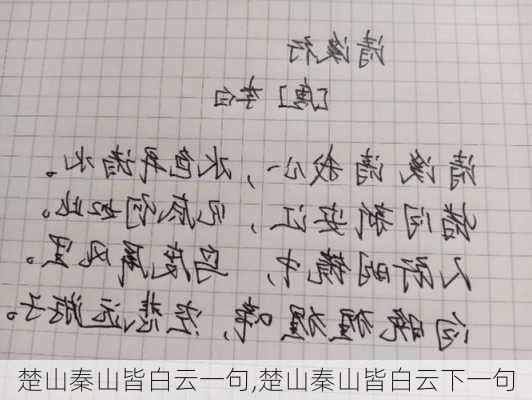 清溪行
[唐] 李白
清溪清我心，水色异诸水。
借问新安江，见底何如此。
人行明镜中，鸟度屏风里。
向晚猩猩啼，空悲远游子。
楚山秦山皆白云一句,楚山秦山皆白云下一句